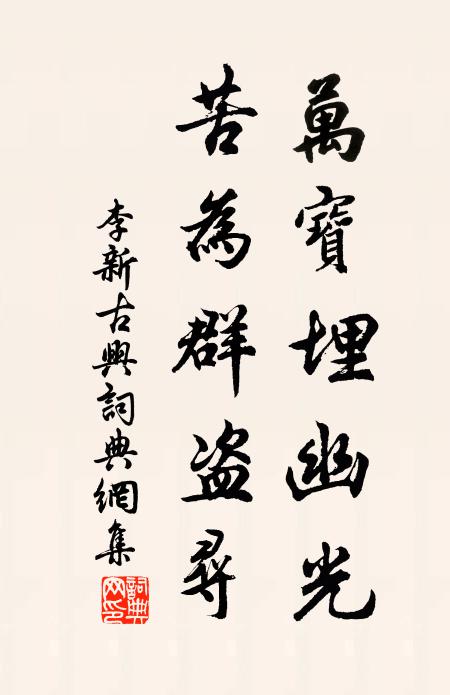 萬寶埋幽光
苦為群盜尋
李新古興詞典網集
詞典網印